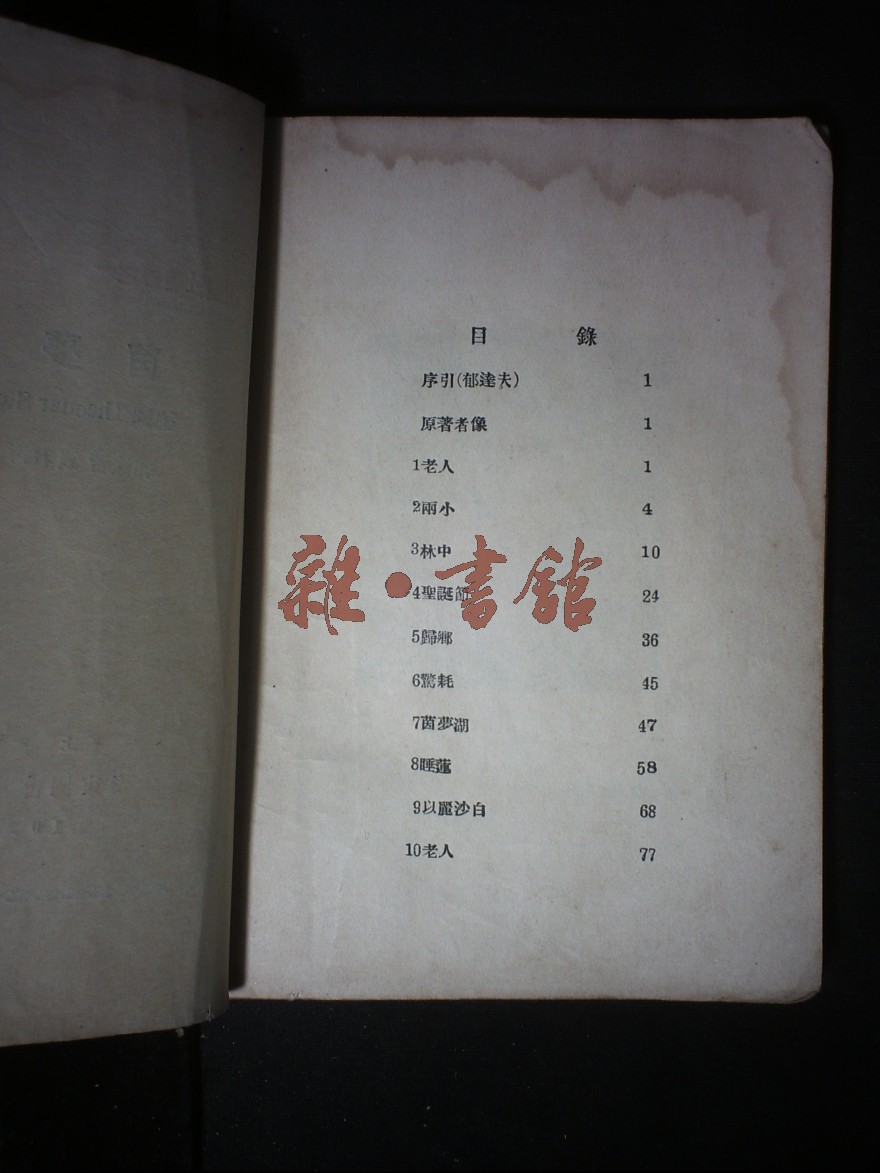 目 錄
序引(郁達夫) 1
原著者像 1
1老人 1
2兩小 4
3林中 10
4聖誕節 24
5歸鄉 36
6驚耗 45
7茵夢湖 47
8睡蓮 58
9以麗沙白 68
10老人 77
雜·書館